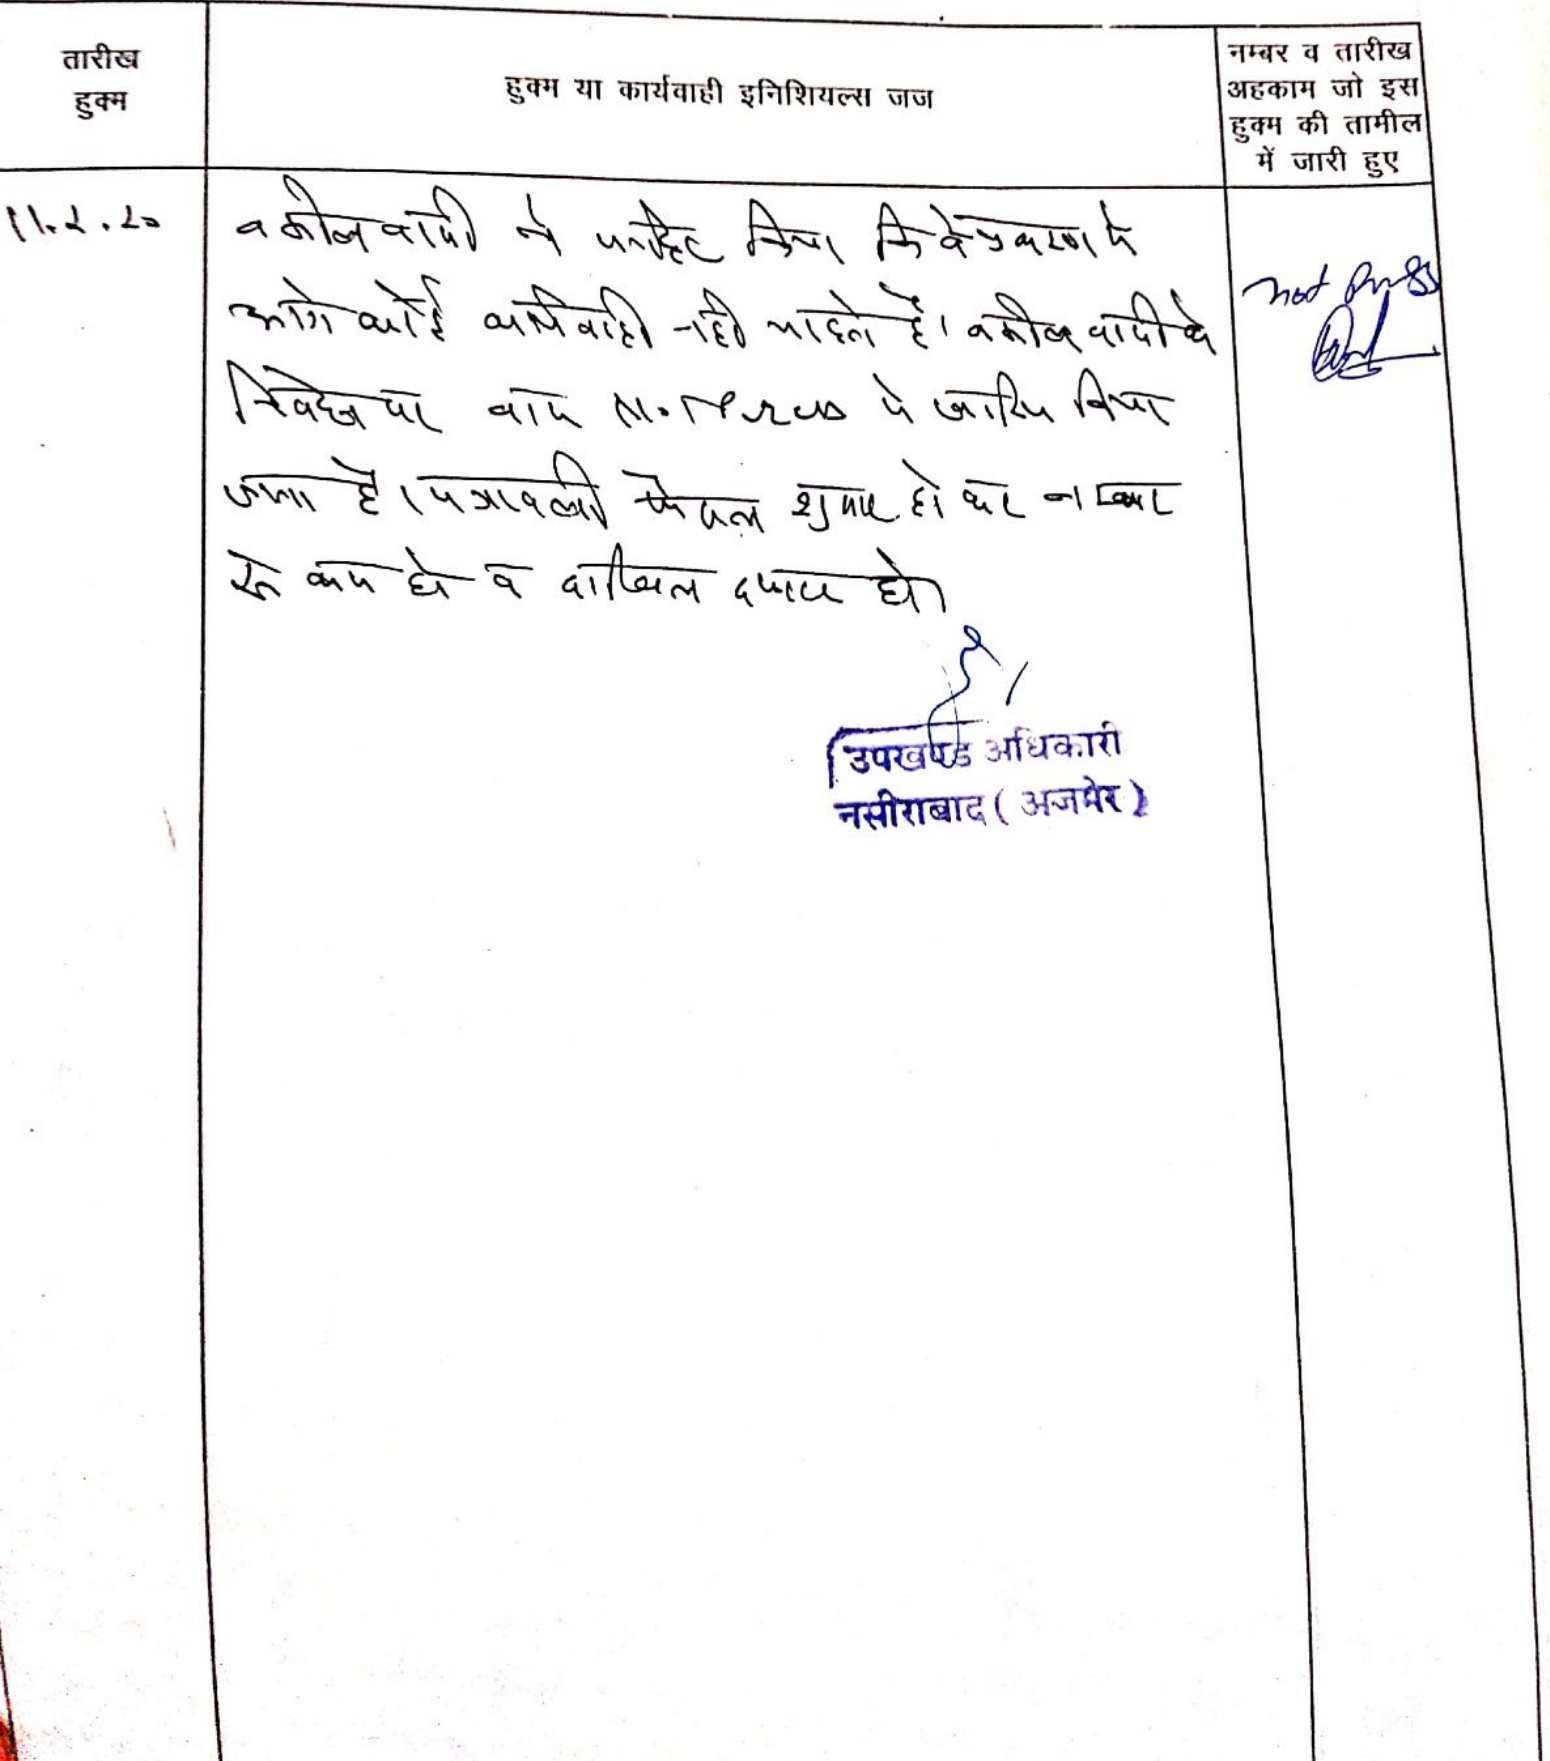 तारीख
हुक्म
हुक्म या कार्यवाही इनिशियल्स जज
नम्बर व तारीख
अहकाम जो इस
हुक्म की तामील
में जारी हुए
11.2.20
वकील वादी ने किया कि वे प्रकरण में
आगे कोई कार्यवाही नही चाहते है। वकील वादी के
निवेदन पर वाद में खारिज किया
जाता है। पत्रावली फैसल शुमार हो कर नम्बर
से कम हो व दाखिल दफ्तर हो।
not press
उपखण्ड अधिकारी
नसीराबाद ( अजमेर )